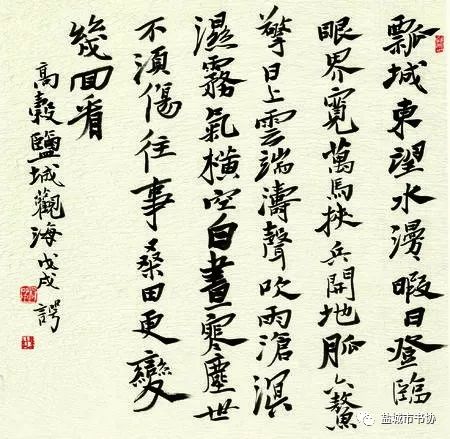 瓢城東望水漫〻暇日登臨
眼界寬萬馬挾兵開地脈六鰲
擎日上雲端濤聲吹雨滄溟
濕霧氣橫空白晝寒塵世
不須傷往事桑田更變
幾回看
高穀鹽城觀海戊戌諤
盐城市书协